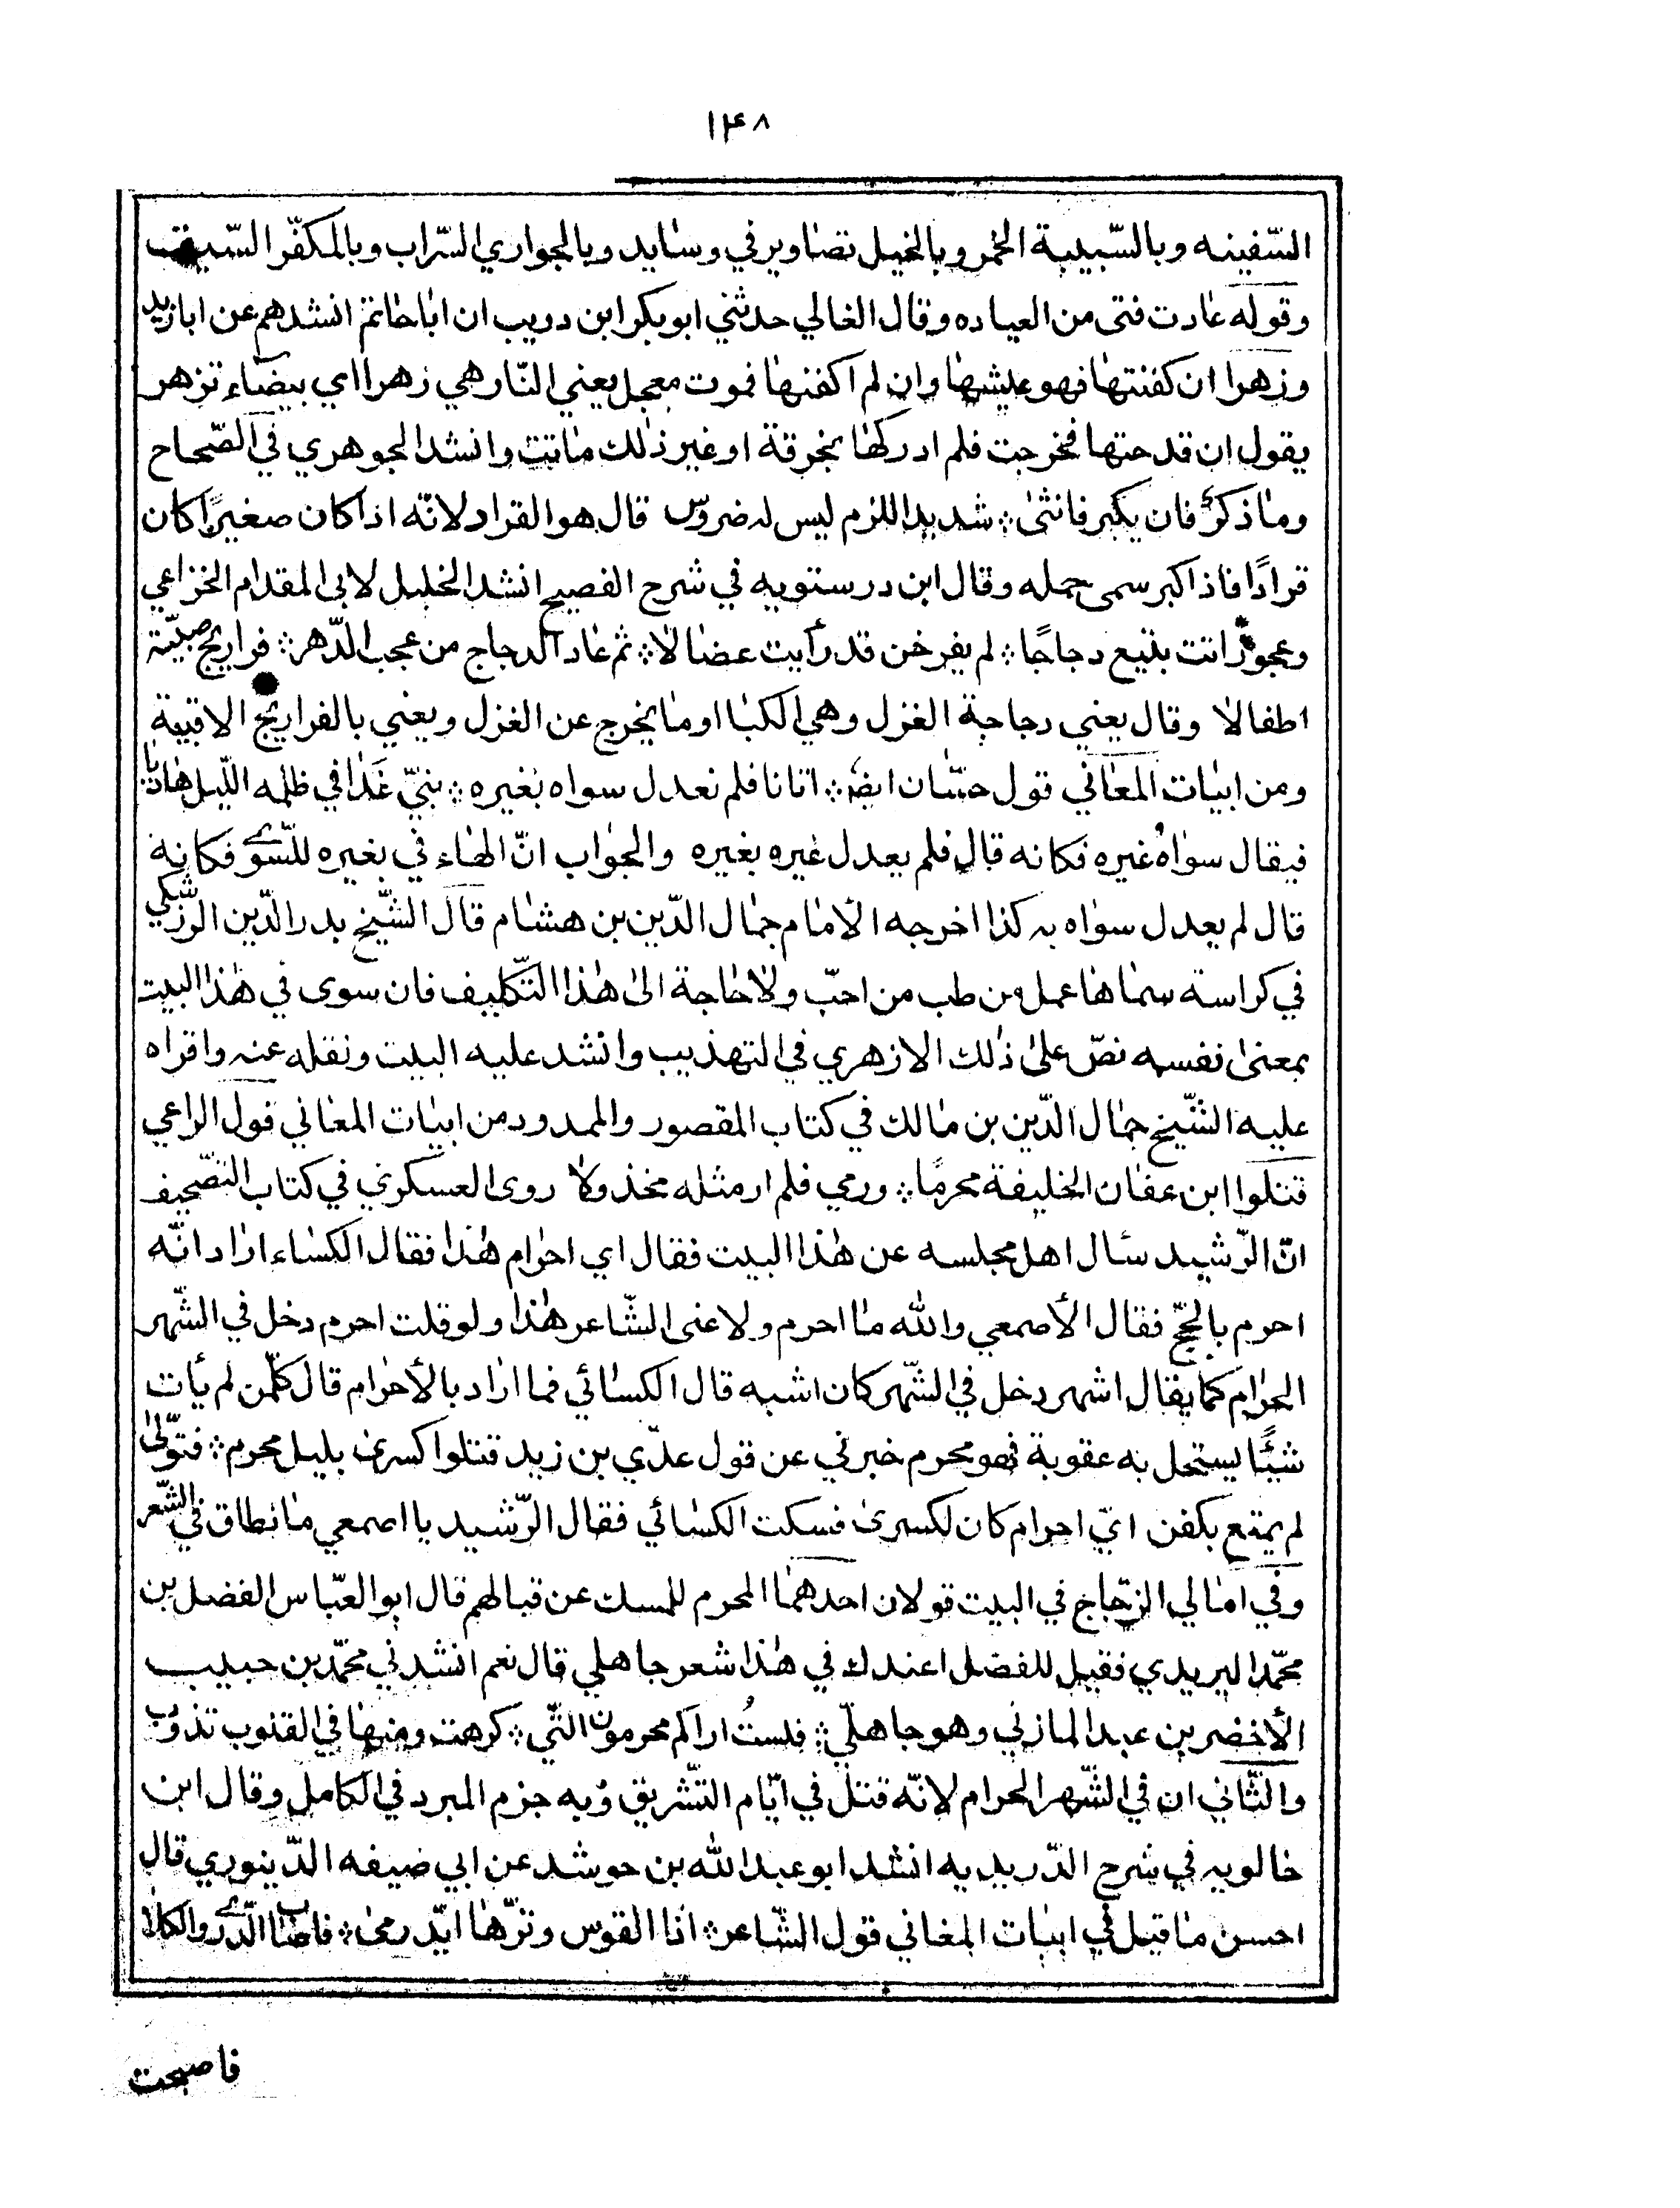 ١٤٨
السّفينه وبالسّبيبة الخمر وبالخيل تصاوير في وسايد وبالجواري السّراب وبالمكفّر السّيف
وقوله عادت فتى من العياده وقال الغالي حدثني ابو بكر ابن دويب ان اباحاتم انشدهم عن ابازيد
وزهرا ان كفنتها فهو عيشها وان لم اكفنها فموت معجل يعني النّار هي زهرا اي بيضاء تزهر
يقول ان قدحتها فخرجت فلم ادركها بخرقة او غير ذلك ماتت وانشد الجوهري في الصّحاح
وما ذكرٌ فان يكبر فانثى ؞ شديد اللزم ليس له ضروس قال هو القراد لانّه اذا كان صغيرًا كان
قرادًا فاذا كبر سمى حمله وقال ابن درستويه في شرح الفصيح انشد الخليل لابى المقدام الخزاعي
وعجوزًا اتت بتيع دجاجًا ؞ لم يفرخن قد رأيت عضالا ؞ ثم عاد الدجاج من عجب الدّهر ؞ فراريج صبيّة
اطفالا وقال يعني دجاجة الغزل وهي الكبا او ما يخرج عن الغزل ويعني بالفراريج الاقبية
ومن ابيات المعاني قول حسّان ايضا ؞ اتانا فلم نعدل سواه بغيره ؞ نبيّ غدا في ظلمه اللّيل هاديا
فيقال سواهُ غيره فكانه قال فلم يعدل غيره بغيره والجواب انّ الهاء في بغيره للسّوى فكانه
قال لم يعدل سواه به كذا اخرجه الأمام جمال الدّين بن هشام قال الشّيخ بدر الدّين الرزكشي
في كراسة سماها عمل من طب من احبّ ولا حاجة الى هذا التّكليف فان سوى في هذا البيت
بمعنى نفسه نصّ على ذلك الازهري في التهذيب وانشد عليه البيت ونقله عنه واقراه
عليه الشّيخ جمال الدّين بن مالك في كتاب المقصور والممدود من ابيات المعاني قول الراعي
قتلوا ابن عفان الخليفة محرمًا ؞ ورمي فلم ار مثله مخذولا روى العسكري في كتاب التّصحيف
انّ الرّشيد سئال اهل مجلسه عن هذا البيت فقال اي احرام هذا فقال الكساء اراد انّه
احرم بالحجّ فقال الأصمعي والله ما احرم ولا عنى الشّاعر هذا ولو قلت احرم دخل في الشّهر
الحرام كما يقال اشهر دخل في الشّهر كان اشبه قال الكسائي فما اراد بالأحرام قال كلّمن لم يأت
شيئًا يستحل به عقوبة فهو محرم خبرني عن قول عدّي بن زيد قتلوا كسرى بليل محرم ؞ فتولّى
لم يمتع بكفن ايّ احرام كان لكسرى فسكت الكسائي فقال الرّشيد يا اصمعي ما نطاق في الشّعر
وفي امالي الزّجاج في البيت قولان احدهما المحرم للمسك عن قبالهم قال ابو العبّاس الفضل بن
محمّد اليريدي فقيل للفضل اعندك في هذا شعر جاهلي قال نعم انشدني محمّد بن حبيب
الأخضر بن عبد المازني وهو جاهلّي ؞ فلستُ اراكم محرمون الّتي ؞ كرهت ومنها في القلوب تذوب
والثّاني ان في الشّهر الحرام لانّه قتل في ايّام التّشريق وبه جزم المبرد في الكامل وقال ابن
خالويه في شرح الدّريديه انشد ابو عبد الله بن خوشد عن ابي ضيفه الدّينوري قال
احسن ما قيل في ابيات المعاني قول الشّاعر ؞ اذا القوس وترّها ايّد رمى ؞ فاصاب الذّرى والكلا
فاصبحت